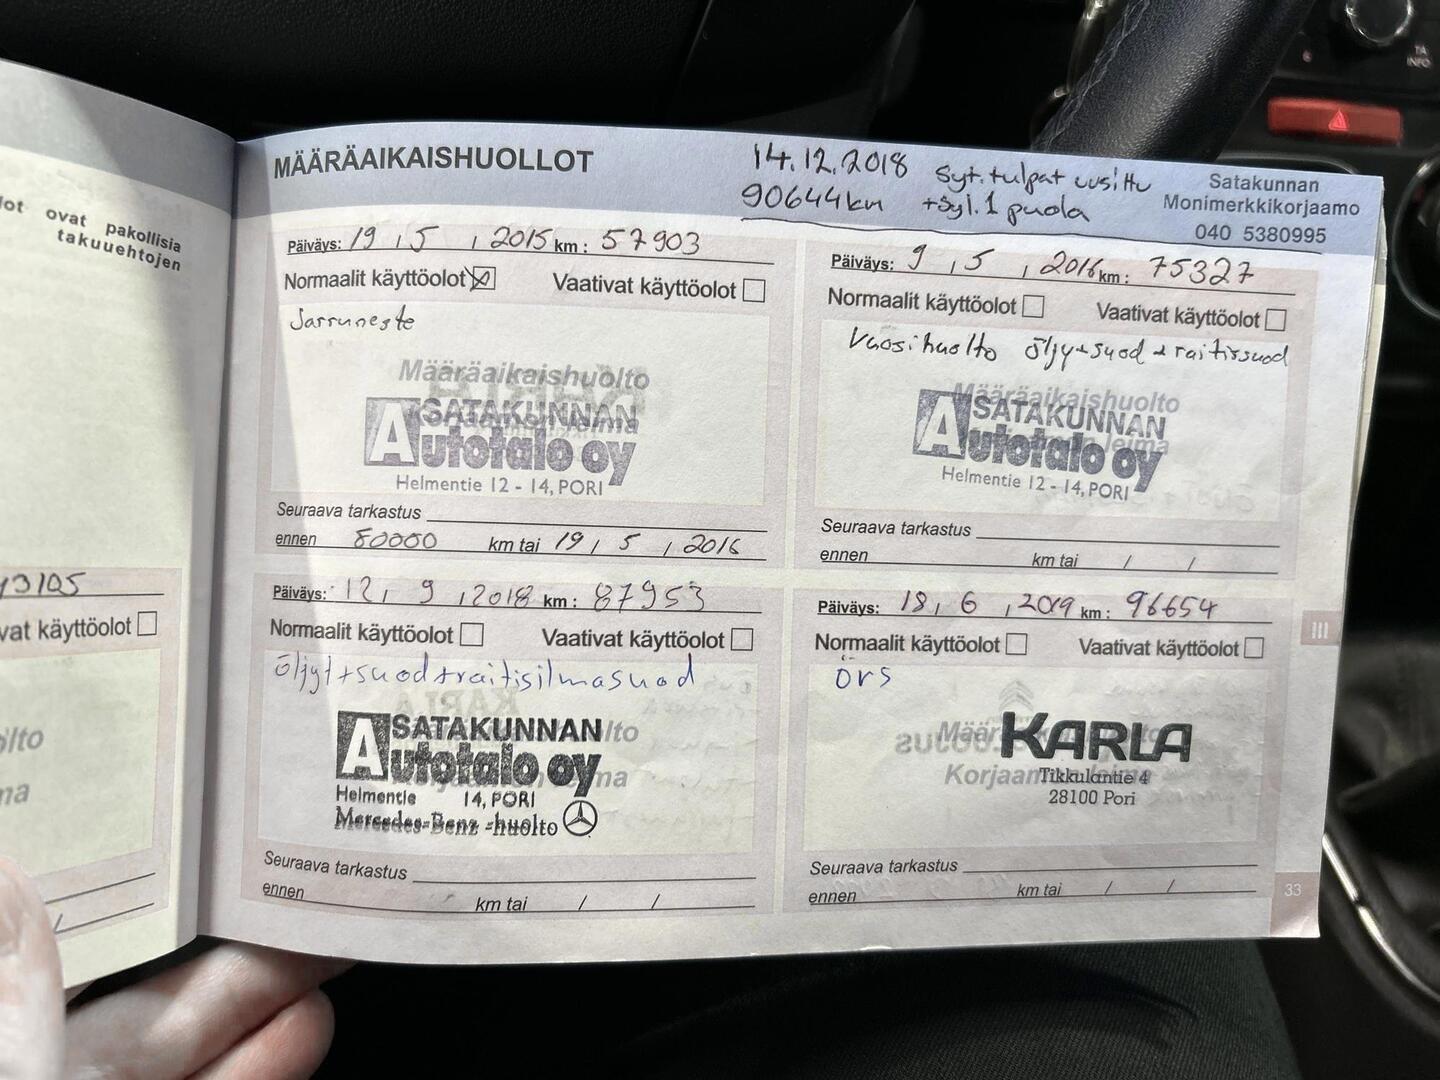 lot ovat pakollisia
takuuehtojen
3105
vat käyttöolot
MÄÄRÄAIKAISHUOLLOT
14.12.2018 syt.tulpat uusittu
90644km +syl.1 puola
Satakunnan
Monimerkkikorjaamo
040 5380995
Päiväys: 19 , 5 , 2015 km : 57903
Normaalit käyttöolot Vaativat käyttöolot
Jarruneste
Määräaikaishuolto
A SATAKUNNAN
Autotalo oy
Helmentie 12 - 14, PORI
Seuraava tarkastus
ennen 80000 km tai 19 / 5 , 2016
Päiväys: 9 , 5 , 2016 km : 75327
Normaalit käyttöolot Vaativat käyttöolot
Vuosihuolto öljy+suod+raitissuod
Määräaikaishuolto
A SATAKUNNAN
Autotalo oy
Helmentie 12 - 14, PORI
Seuraava tarkastus
ennen km tai / /
Päiväys: 12, 9 , 2018 km : 87953
Normaalit käyttöolot Vaativat käyttöolot
öljyt+suod+raitisilmasuod
A SATAKUNNAN
Autotalo oy
Helmentie 14, PORI
Mercedes-Benz -huolto
Seuraava tarkastus
ennen km tai / /
Päiväys: 18, 6 , 2019 km : 96654
Normaalit käyttöolot Vaativat käyttöolot
örs
KARLA
Tikkulantie 4
28100 Pori
Seuraava tarkastus
ennen km tai / /
III
33
TA
INFO